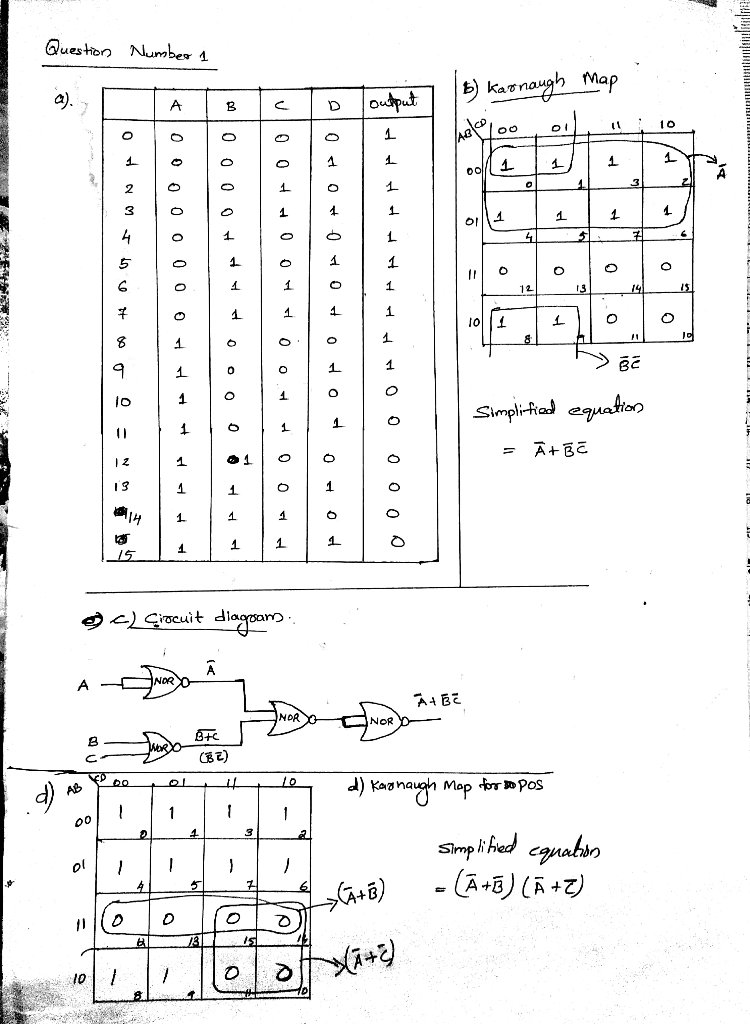 Question Number 1
a).
A B C D output
0 0 0 0 0 1
1 0 0 0 1 1
2 0 0 1 0 1
3 0 0 1 1 1
4 0 1 0 0 1
5 0 1 0 1 1
6 0 1 1 0 1
7 0 1 1 1 1
8 1 0 0 0 1
9 1 0 0 1 1
10 1 0 1 0 0
11 1 0 1 1 0
12 1 1 0 0 0
13 1 1 0 1 0
14 1 1 1 0 0
15 1 1 1 1 0
b) Karnaugh Map
AB CD 00 01 11 10
00 1 1 1 1 Ā
0 1 3 2
01 1 1 1 1
4 5 7 6
11 0 0 0 0
12 13 14 15
10 1 1 0 0
8 9 11 10
B̄C̄
Simplified equation
= Ā + B̄C̄
c) Circuit diagram.
A NOR Ā
NOR NOR Ā+B̄C̄
B C NOR B+C
(B̄C̄)
d) AB CD 00 01 11 10
00 1 1 1 1
0 1 3 2
01 1 1 1 1
4 5 7 6
11 0 0 0 0 (Ā+B̄)
12 13 15 14
10 1 1 0 0 (Ā+C̄)
8 9 11 10
d) Karnaugh Map for POS
Simplified equation
= (Ā+B̄) (Ā+C̄)